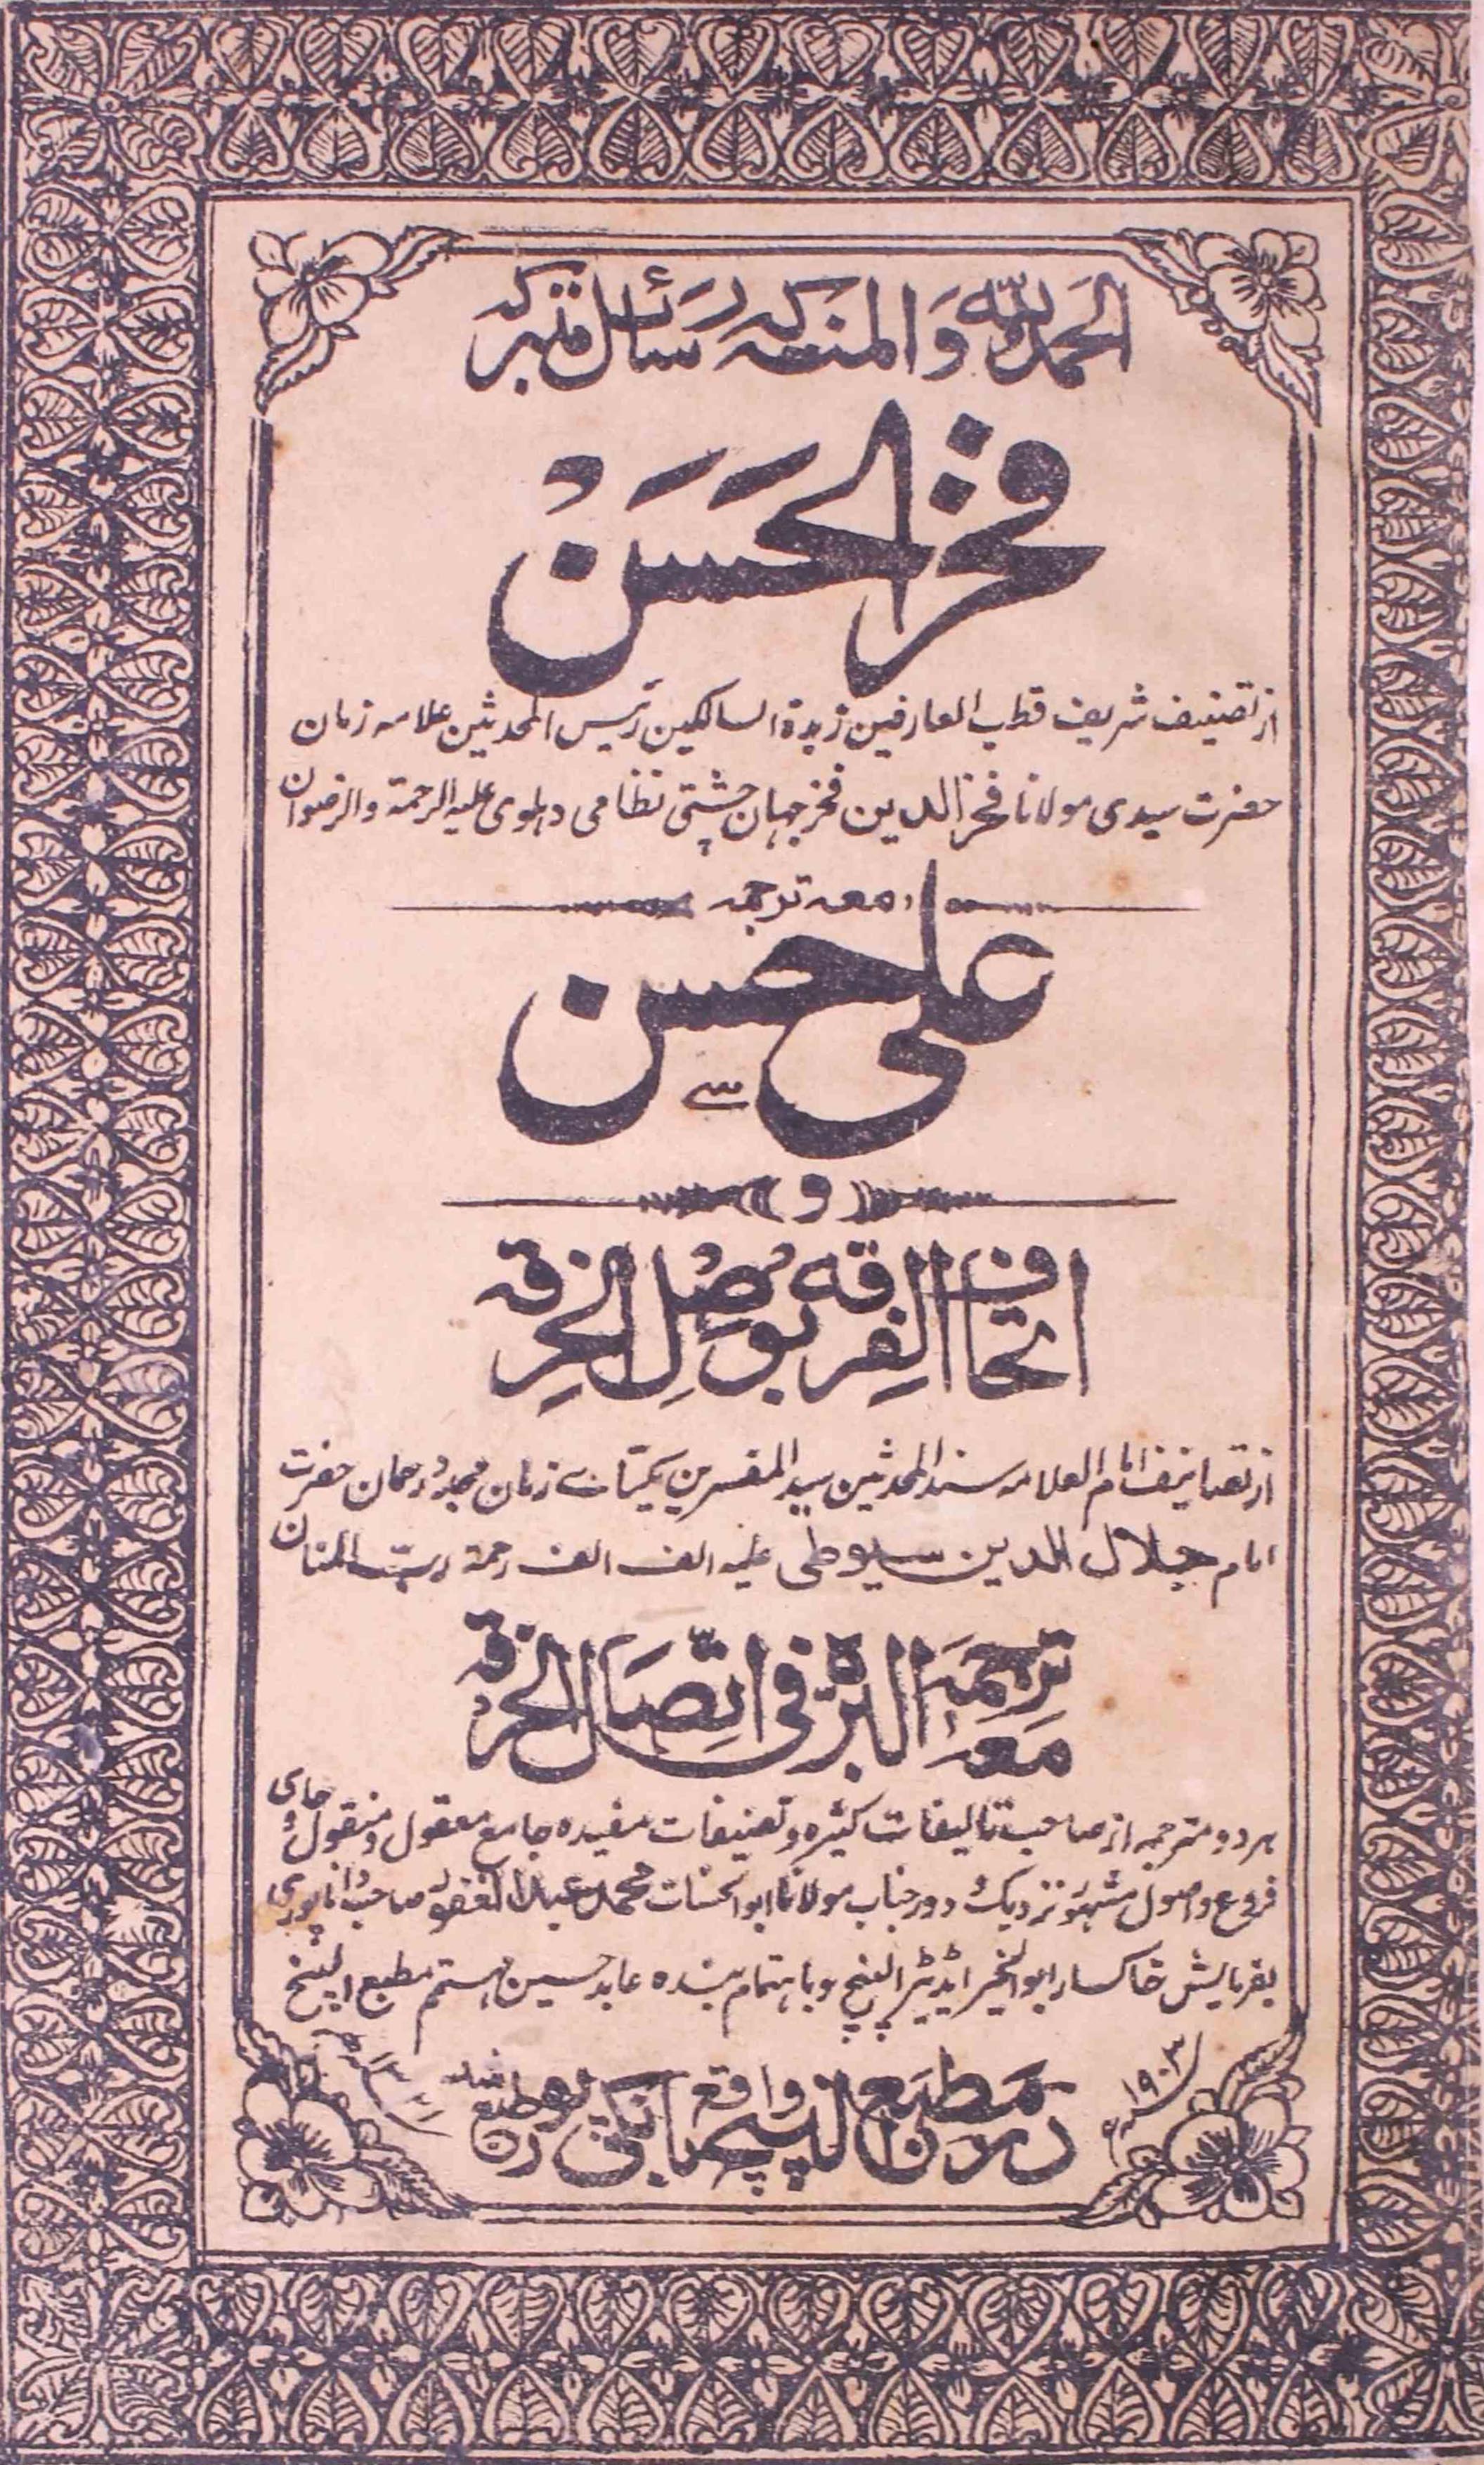 الحمد للہ والمنہ کہ رسائل متبرکہ
فخر الحسن
از تصنیف شریف قطب العارفین زبدۃ السالکین رئیس المحدثین علامہ زمان
حضرت سیدی مولانا فخر الدین فخر جہان چشتی نظامی دہلوی علیہ الرحمۃ والرضوان
معہ ترجمہ
علی حسن
سے
و
اتحاف الفرقہ بوصل الخرقہ
از تصانیف امام العلامہ سند المحدثین سید المفسرین یکتائے زمان مجدد دوران حضرت
امام جلال الدین سیوطی علیہ الف الف رحمۃ رب المنان
معہ ترجمہ البرۃ فی اتصال الخرقہ
ہر دو مترجمہ از صاحب تالیفات کثیرہ و تصنیفات مفیدہ جامع معقول و منقول حاوی
فروع و اصول مشہور نزدیک و دور جناب مولانا ابو الحسنات محمد عبد الغفور صاحب دانا پوری
بفرمایش خاکسار ابو الخیر ایڈیٹر الپنچ و باہتمام بندہ عابد حسین مہتمم مطبع الپنچ
۱۹۰۳
در مطبع الپنچ واقع بانکی پور طبع شد